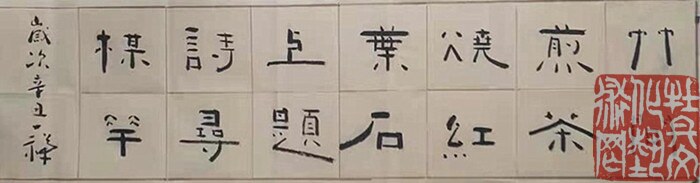 竹
煎茶
燒紅
葉石
上題
詩尋
楳竿
歲次辛丑